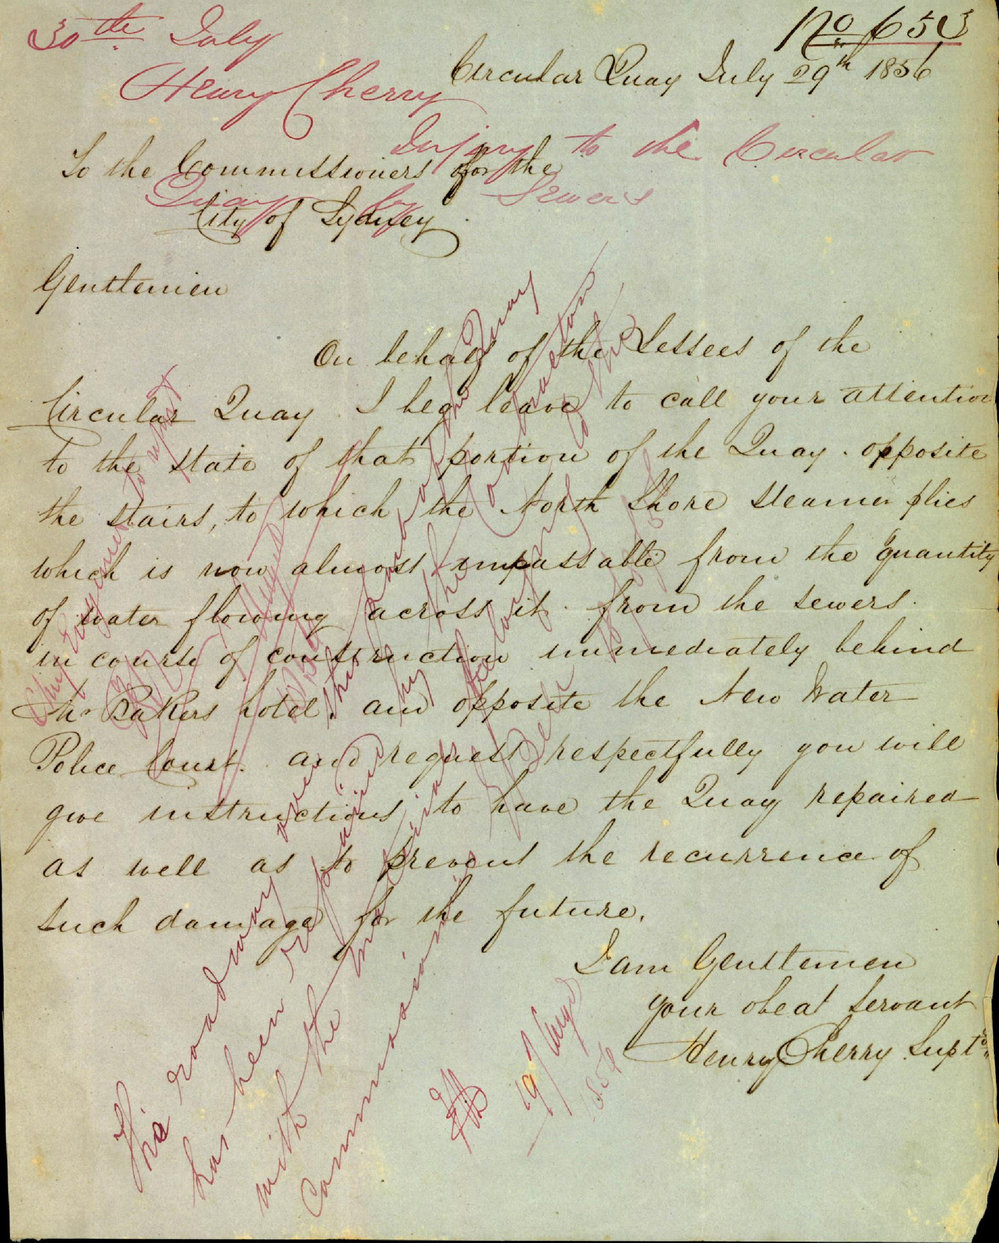 No 653
30th July
Circular Quay July 29th 1856
Henry Cherry
Injury to the Circular
Quay by Sewers
To the Commissioners for the
City of Sydney
Gentlemen
On behalf of the Lessees of the
Circular Quay I beg leave to call your attention
to the state of that portion of the Quay opposite
the stairs, to which the North Shore Steamer plies
which is now almost impassable from the quantity
of water flowing across it from the sewers
in course of construction immediately behind
Mr Bakers hotel. and opposite the New Water
Police Court. and request respectfully you will
give instructions to have the Quay repaired
as well as to prevent the recurrence of
such damage for the future.
I am Gentlemen
your obedt Servant
Henry Cherry Supt
City Engineer to report
This roadway over the
has been repaired by the Contractor
with the materials
Commissioners
19/Augst
1856